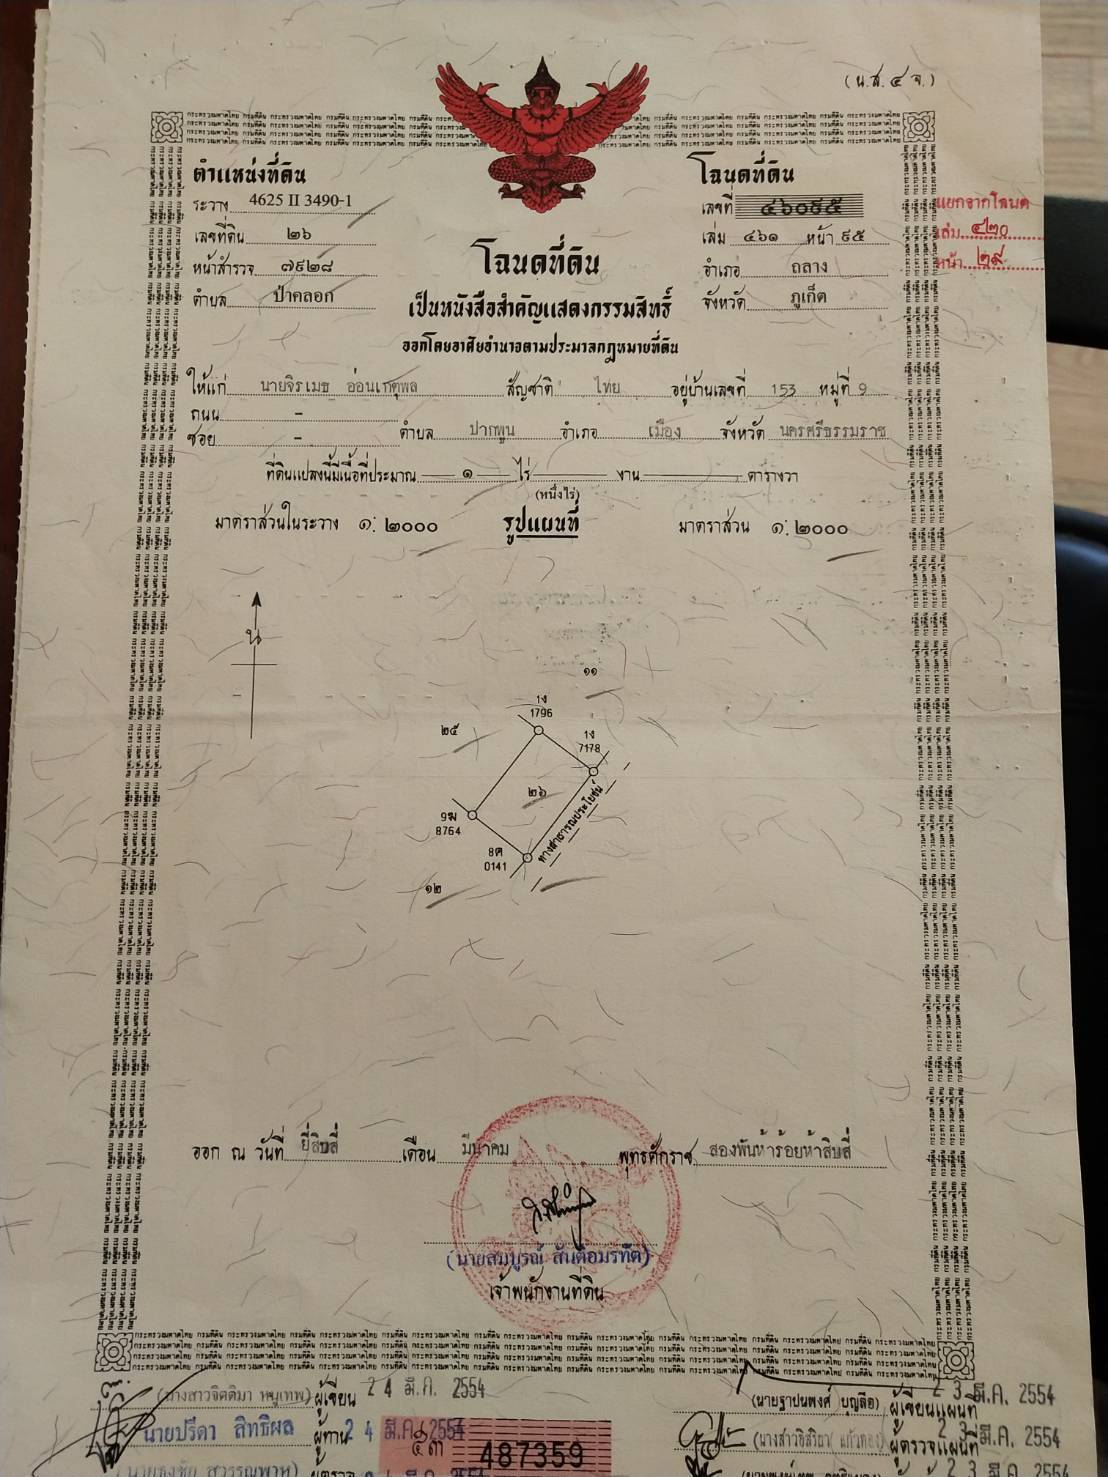 (น.ส.๔ จ.)
ตำแหน่งที่ดิน
ระวาง 4625 II 3490-1
เลขที่ดิน ๒๖
หน้าสำรวจ ๗๙๒๘
ตำบล ป่าคลอก
โฉนดที่ดิน
เลขที่ ๔๖๐๙๕
เล่ม ๔๖๑ หน้า ๙๕
อำเภอ ถลาง
จังหวัด ภูเก็ต
แยกจากโฉนด
เล่ม ๔๒๐
หน้า ๒๙
โฉนดที่ดิน
เป็นหนังสือสำคัญแสดงกรรมสิทธิ์
ออกโดยอาศัยอำนาจตามประมวลกฎหมายที่ดิน
ให้แก่ นายจิรเมธ อ่อนเกตุพล สัญชาติ ไทย อยู่บ้านเลขที่ 153 หมู่ที่ 9
ถนน -
ซอย - ตำบล ปากพูน อำเภอ เมือง จังหวัด นครศรีธรรมราช
ที่ดินแปลงนี้มีเนื้อที่ประมาณ ๑ ไร่ งาน ตารางวา
(หนึ่งไร่)
มาตราส่วนในระวาง ๑:๒๐๐๐ รูปแผนที่ มาตราส่วน ๑:๒๐๐๐
น
๑๑
1ง
1796
๒๕
1ง
7178
๒๖
9ฆ
8764
ทางสาธารณประโยชน์
8ค
0141
๑๒
ออก ณ วันที่ ยี่สิบสี่ เดือน มีนาคม พุทธศักราช สองพันห้าร้อยห้าสิบสี่
(นายสมบูรณ์ สันติอมรทัต)
เจ้าพนักงานที่ดิน
(นางสาวจิตติมา หนูเทพ) ผู้เขียน 24 มี.ค. 2554
นายปรีดา สิทธิผล ผู้ทาน 24 มี.ค. 2554
487359
(นายฐาปนพงศ์ บุญลือ) ผู้เขียนแผนที่ 23 มี.ค. 2554
(นางสาวอิสริยา แก้วทอง) ผู้ตรวจแผนที่ 23 มี.ค. 2554